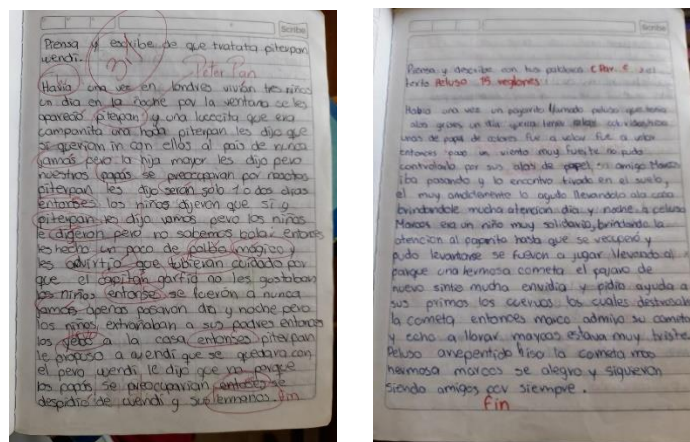 Scribe
Piensa y escribe de que tratata piterpan
wendi.
3.5
Peter Pan
Había una vez en londres vivían tres niños
un día en la noche por la ventana se les
aparecio piterpan y una lucecita que era
campanita una hada piterpan les dijo que
si querian ir con ellos al país de nunca
jamas pero la hija mayor les dijo pero
nuestros papas se preocuparan por nosotros
piterpan les dijo seran solo 1 o dos dias
entonses los niños dijeron que si y
piterpan le dijo vamos pero los niños
le digeron pero no sabemos bolar entonses
les hecho un poco de polbo magico y
les advirtio que tubieran cuidado por
que el capitan garfio no les gustaban
los niños entonse se fueron a nunca
jamas apenas pasaron dia y noche pero
los niños extrañaban a sus padres entonces
los llebo a la casa entonses piterpan
le propuso a wendi que se quedara con
el pero wendi le dijo que no porque
los papás se preocuparian entonses se
despidio de wendi y sus ermanos. fin
Scribe
Piensa y describe con tus palabras el
texto Peluso 15 reglones
Habia una vez un pajarito llamado peluso que tenia
alas grises un dia queria tener alas
unas de papel de colores fue a volar fue a volar
entonces paso un viento muy fuerte no pudo
controlarlo por sus alas de papel, su amigo Marcos
iba pasando y lo encontro tirado en el suelo,
el muy amablemente lo ayudo llevandolo ala casa
brindandole mucha atencion dia y noche a peluso
Marcos era un niño muy solidario, brindando la
atencion al pajarito hasta que se recuperó y
pudo levantarse se fueron a jugar llevando al
parque una hermosa cometa el pajaro de
nuevo sintio mucha envidia y pidio ayuda a
sus primos los cuervos los cuales destrosaron
la cometa entonces marco admiro su cometa
y echo a llorar marcos estava muy triste
Peluso arrepentido hiso la cometa mas
hermosa marcos se alegro y siguieron
siendo amigos por siempre.
fin